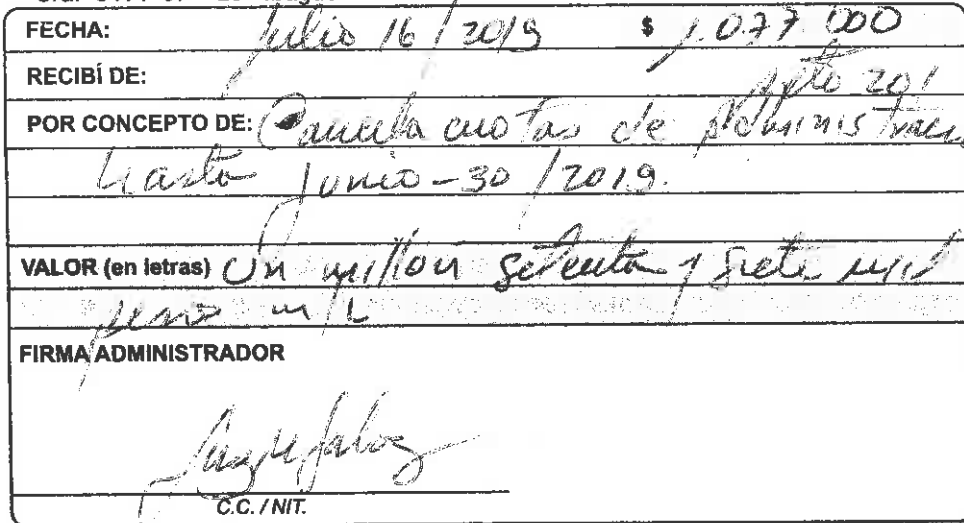 FECHA: Julio 16 / 2019 $ 1.077.000
RECIBÍ DE: Apto 201
POR CONCEPTO DE: Cancela cuotas de Administracion
Hasta Junio - 30 / 2019.
VALOR (en letras) Un millón setenta y siete mil
pesos m/L
FIRMA ADMINISTRADOR
C.C. / NIT.